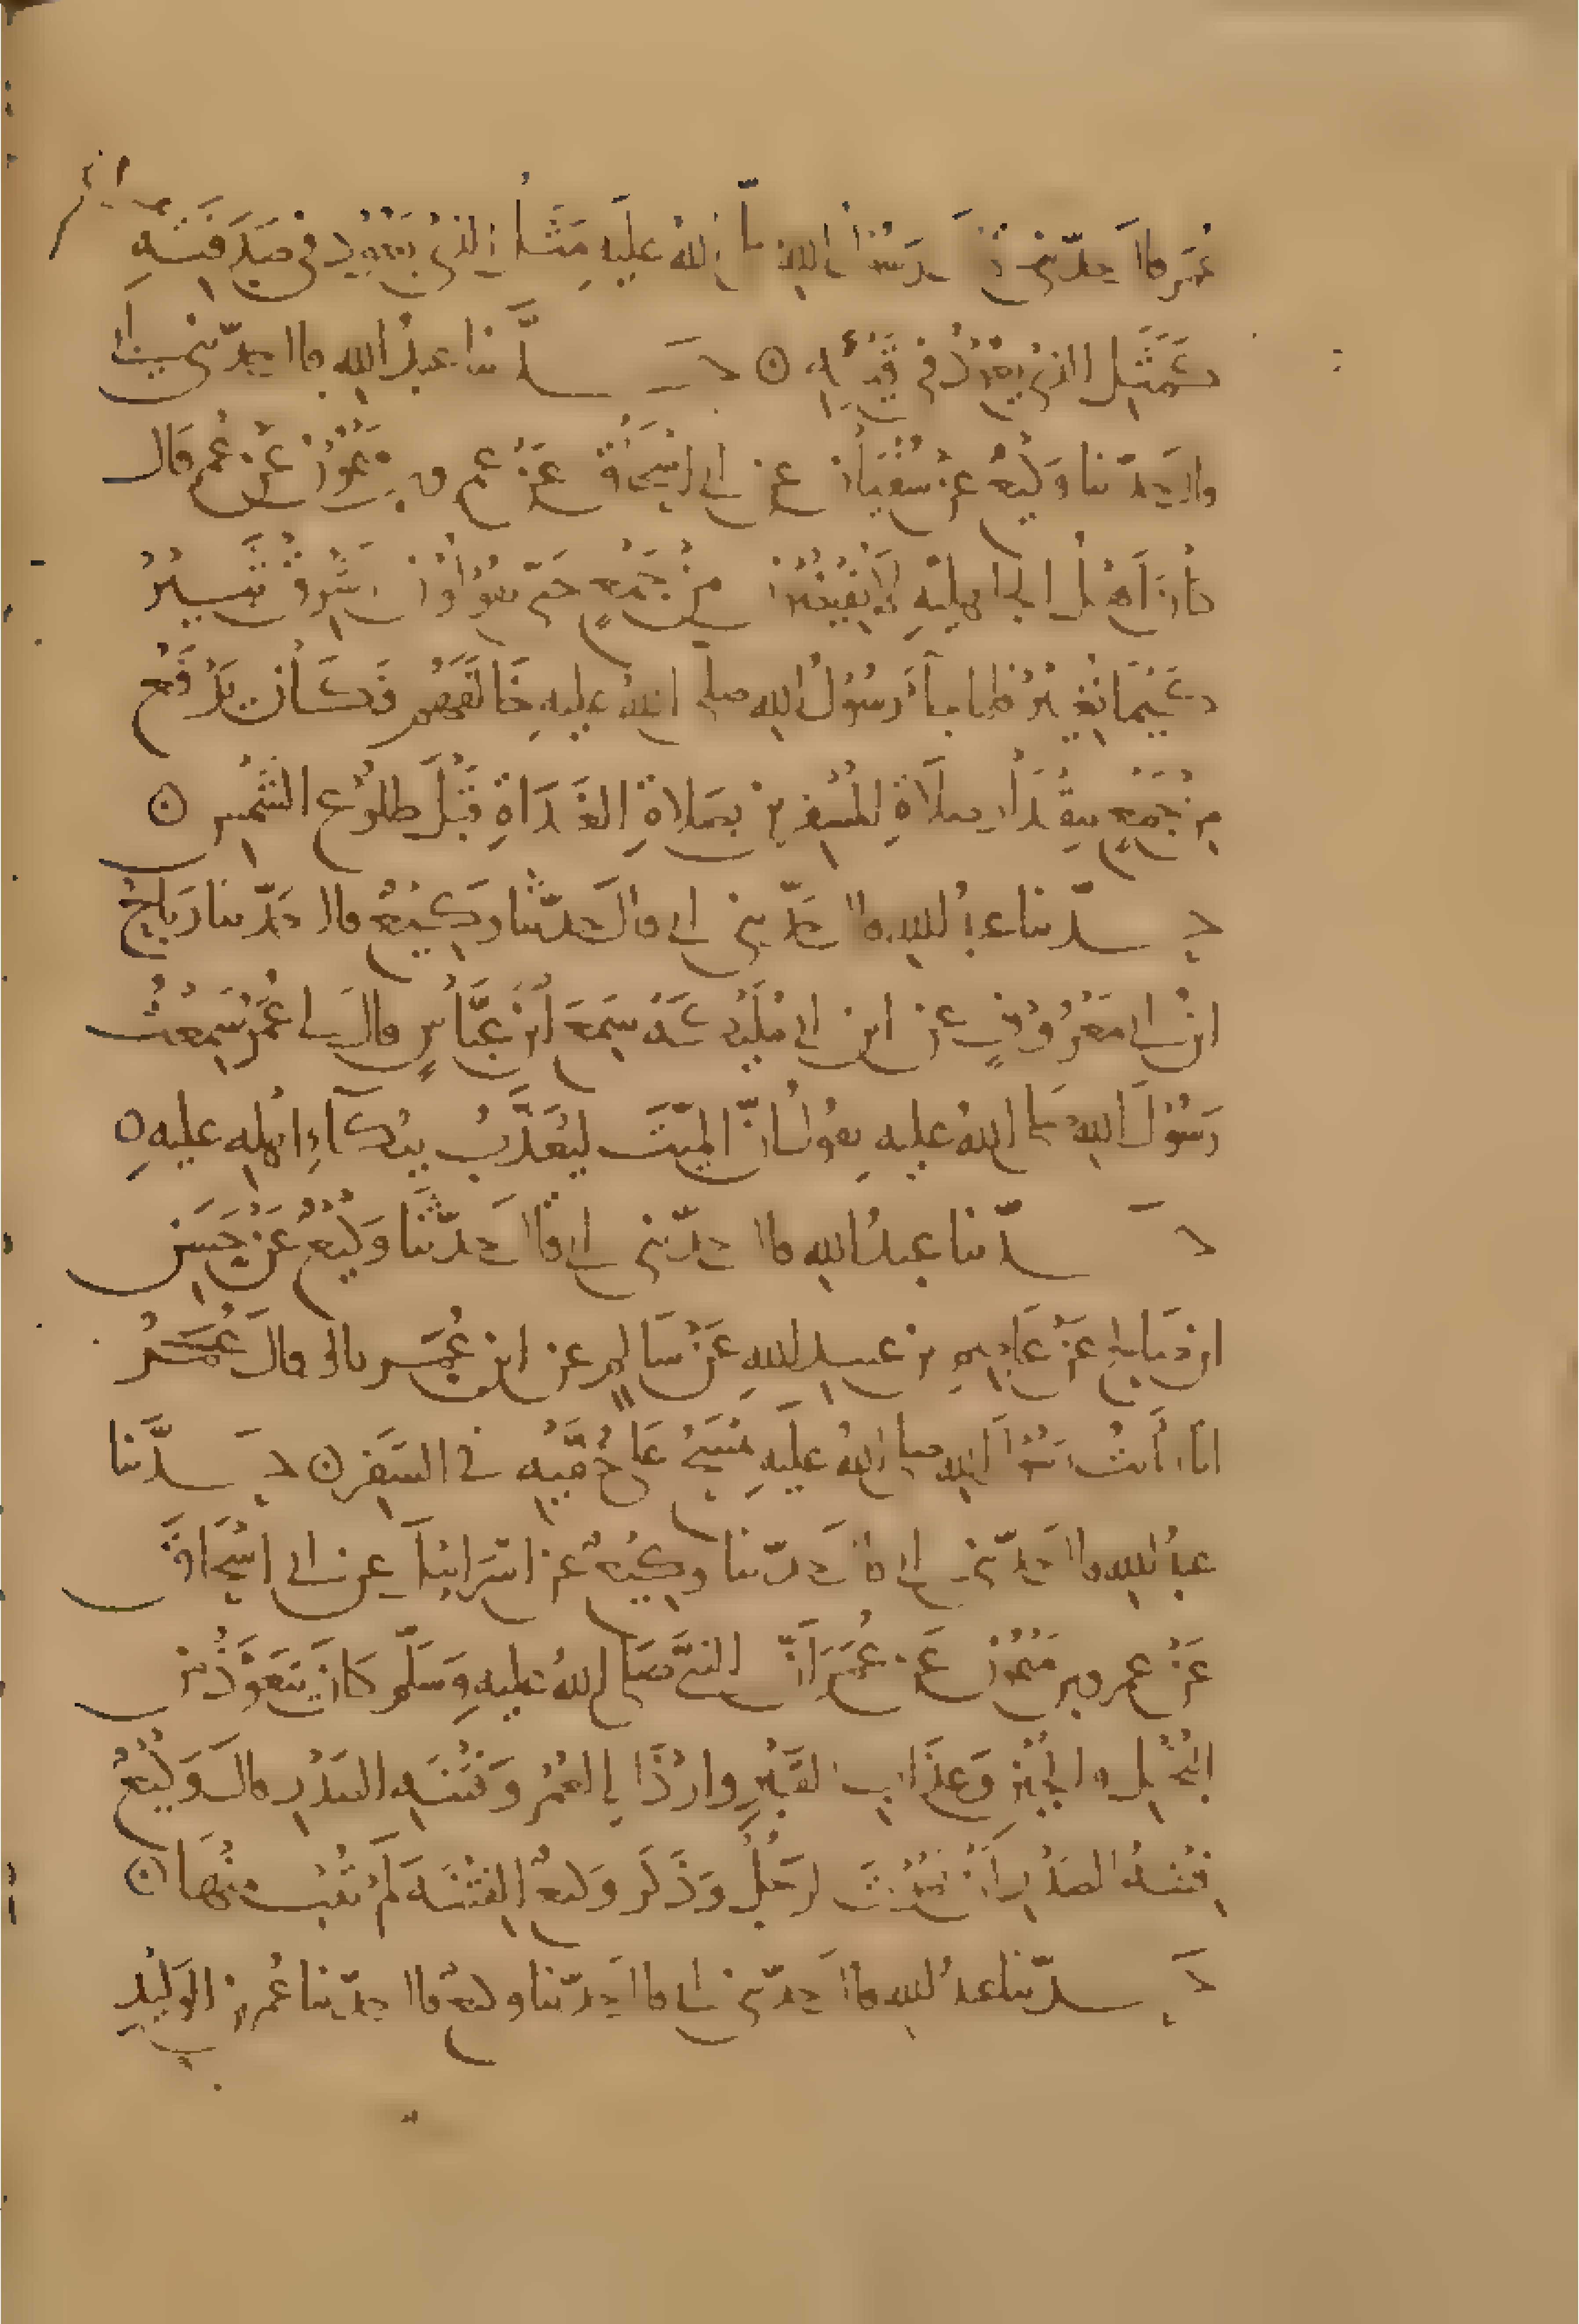 عُمَر قال حدّثنى رسُول الله صلى الله عليه مَثَل الذى يعُود في صَدَقَتِه
كَمَثَلِ الذى يعُودُ في قَيْئِهِ ۞ حَدَّثنا عبدُ الله قال حدّثنى أبى
قال حدّثنا وَكيعٌ عنْ سُفيَانَ عن أبى إسحَاقَ عَنْ عمرو بن مَيْمُونٍ عَنْ عُمر قال
كانَ أهْلُ الجاهِليّةِ لا يُفيضُونَ مِنْ جَمْعٍ حَتّى يقولُوا أشرِقْ ثَبِيرُ
كَيْمَا نُغِيْرُ فلما جآءَ رسُوْلُ الله صلى اللهُ عليهِ خَالَفَهُم فَكَانَ يَدْفَعُ
مِنْ جَمْعٍ مِقْدَارَ صَلَاةِ المُسْفِرِينَ بصَلاةِ الغَدَاةِ قَبْلَ طلوْعِ الشَّمْسِ ۞
حدّثنا عبدُ الله قال حدّثنى أبى قال حدّثنا وَكِيْعٌ قال حدّثنا رَبَاحُ
ابن أبى مَعْرُوفٍ عن ابن أبى مُلَيْكَةَ سَمِعَ ابنَ عَبَّاسٍ قال قال لى عُمَرُ سَمِعْتُ
رَسُوْلَ الله صلى اللهُ عليه يقولُ إنّ المَيّتَ ليُعَذَّبُ ببُكآءِ أهْلِه عليهِ ۞
حدّثنا عبدُ الله قال حدّثنى أبى قال حدّثَنَا وَكيْعٌ عَنْ حَسَنِ
ابن صَالحٍ عَنْ عَاصِمِ بن عبيد اللهِ عَنْ سَالِمٍ عن ابن عُمَر قال قالَ عُمَرُ
أنا رأيتُ رسُوْلَ اللهِ صلى اللهُ عليهِ يمْسَحُ عَلى خُفَّيْهِ في السَّفَرِ ۞ حدَّثنا
عبدُ الله قال حدّثنى أبى قال حدّثنا وكيْعٌ عن إسْرَائيلَ عن أبى إسْحَاقَ
عَنْ عمرو بن مَيْمُونٍ عَنْ عُمَرَ أنّ النبىَّ صلى اللهُ عليه وَسَلّم كانَ يَتَعَوّذُ من
البُخْلِ والجُبْنِ وَعَذَابِ القَبْرِ وأرْذَلِ العُمُرِ وَفتْنَةِ الصَدْرِ قالَ وَكيْعٌ
فِتْنَةُ الصَدْرِ أنْ يَمُوْتَ الرجُلُ وَذَكَر وَكيعٌ الفِتْنَةَ لَمْ يتُبْ منْهَا ۞
حدّثنا عبدُ الله قال حدّثنى أبى قال حدّثنا وكيعٌ قال حدّثنا عُمر بن الوَليْدِ